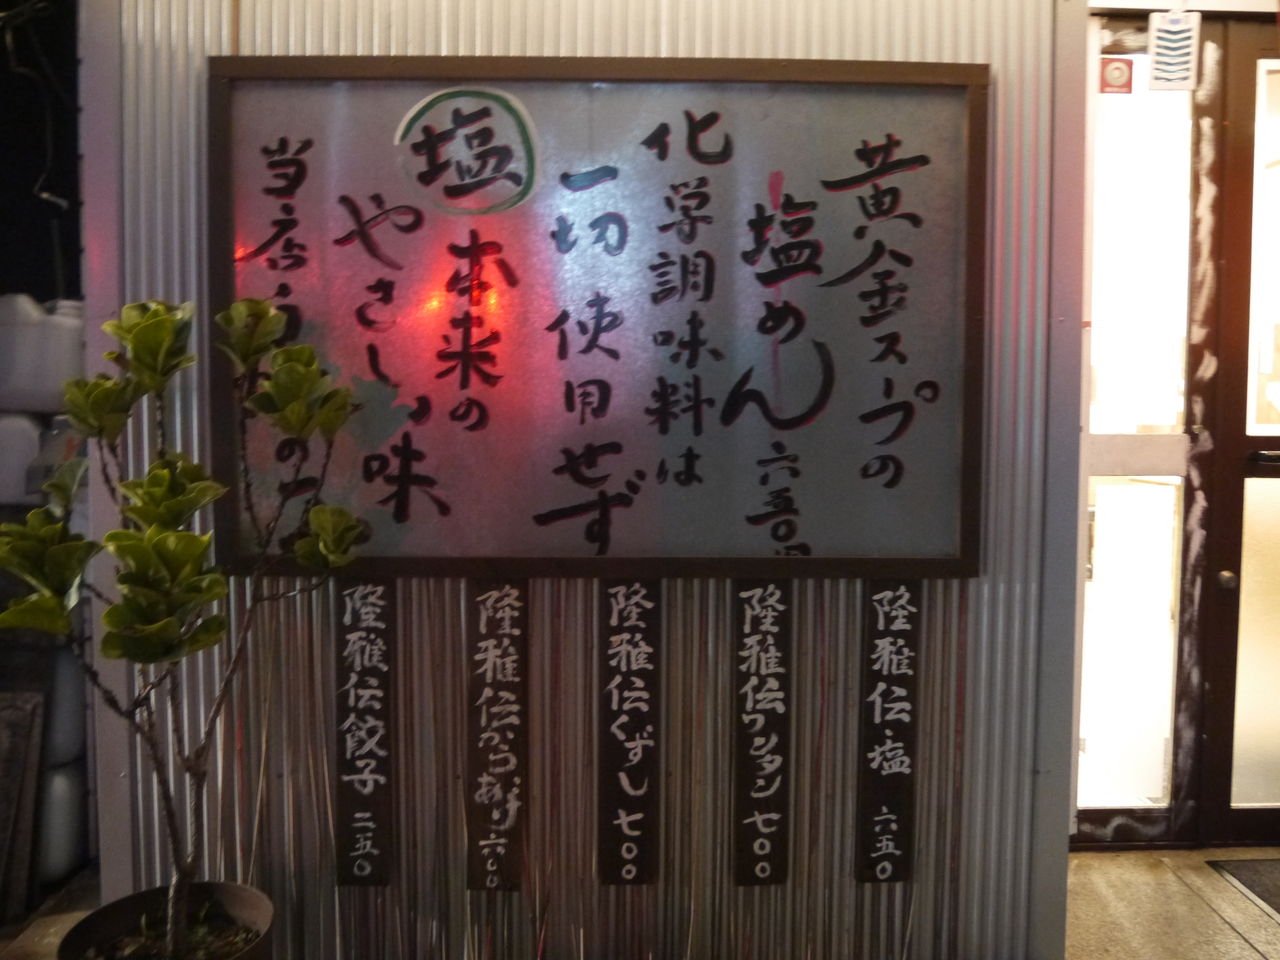 黄金スープの
塩めん 六五〇円
化学調味料は
一切使用せず
塩本来の
やさしい味
当店
の
隆雅伝・塩 六五〇
隆雅伝ワンタン 七〇〇
隆雅伝くずし 七〇〇
隆雅伝からあげ 六〇〇
隆雅伝餃子 二五〇